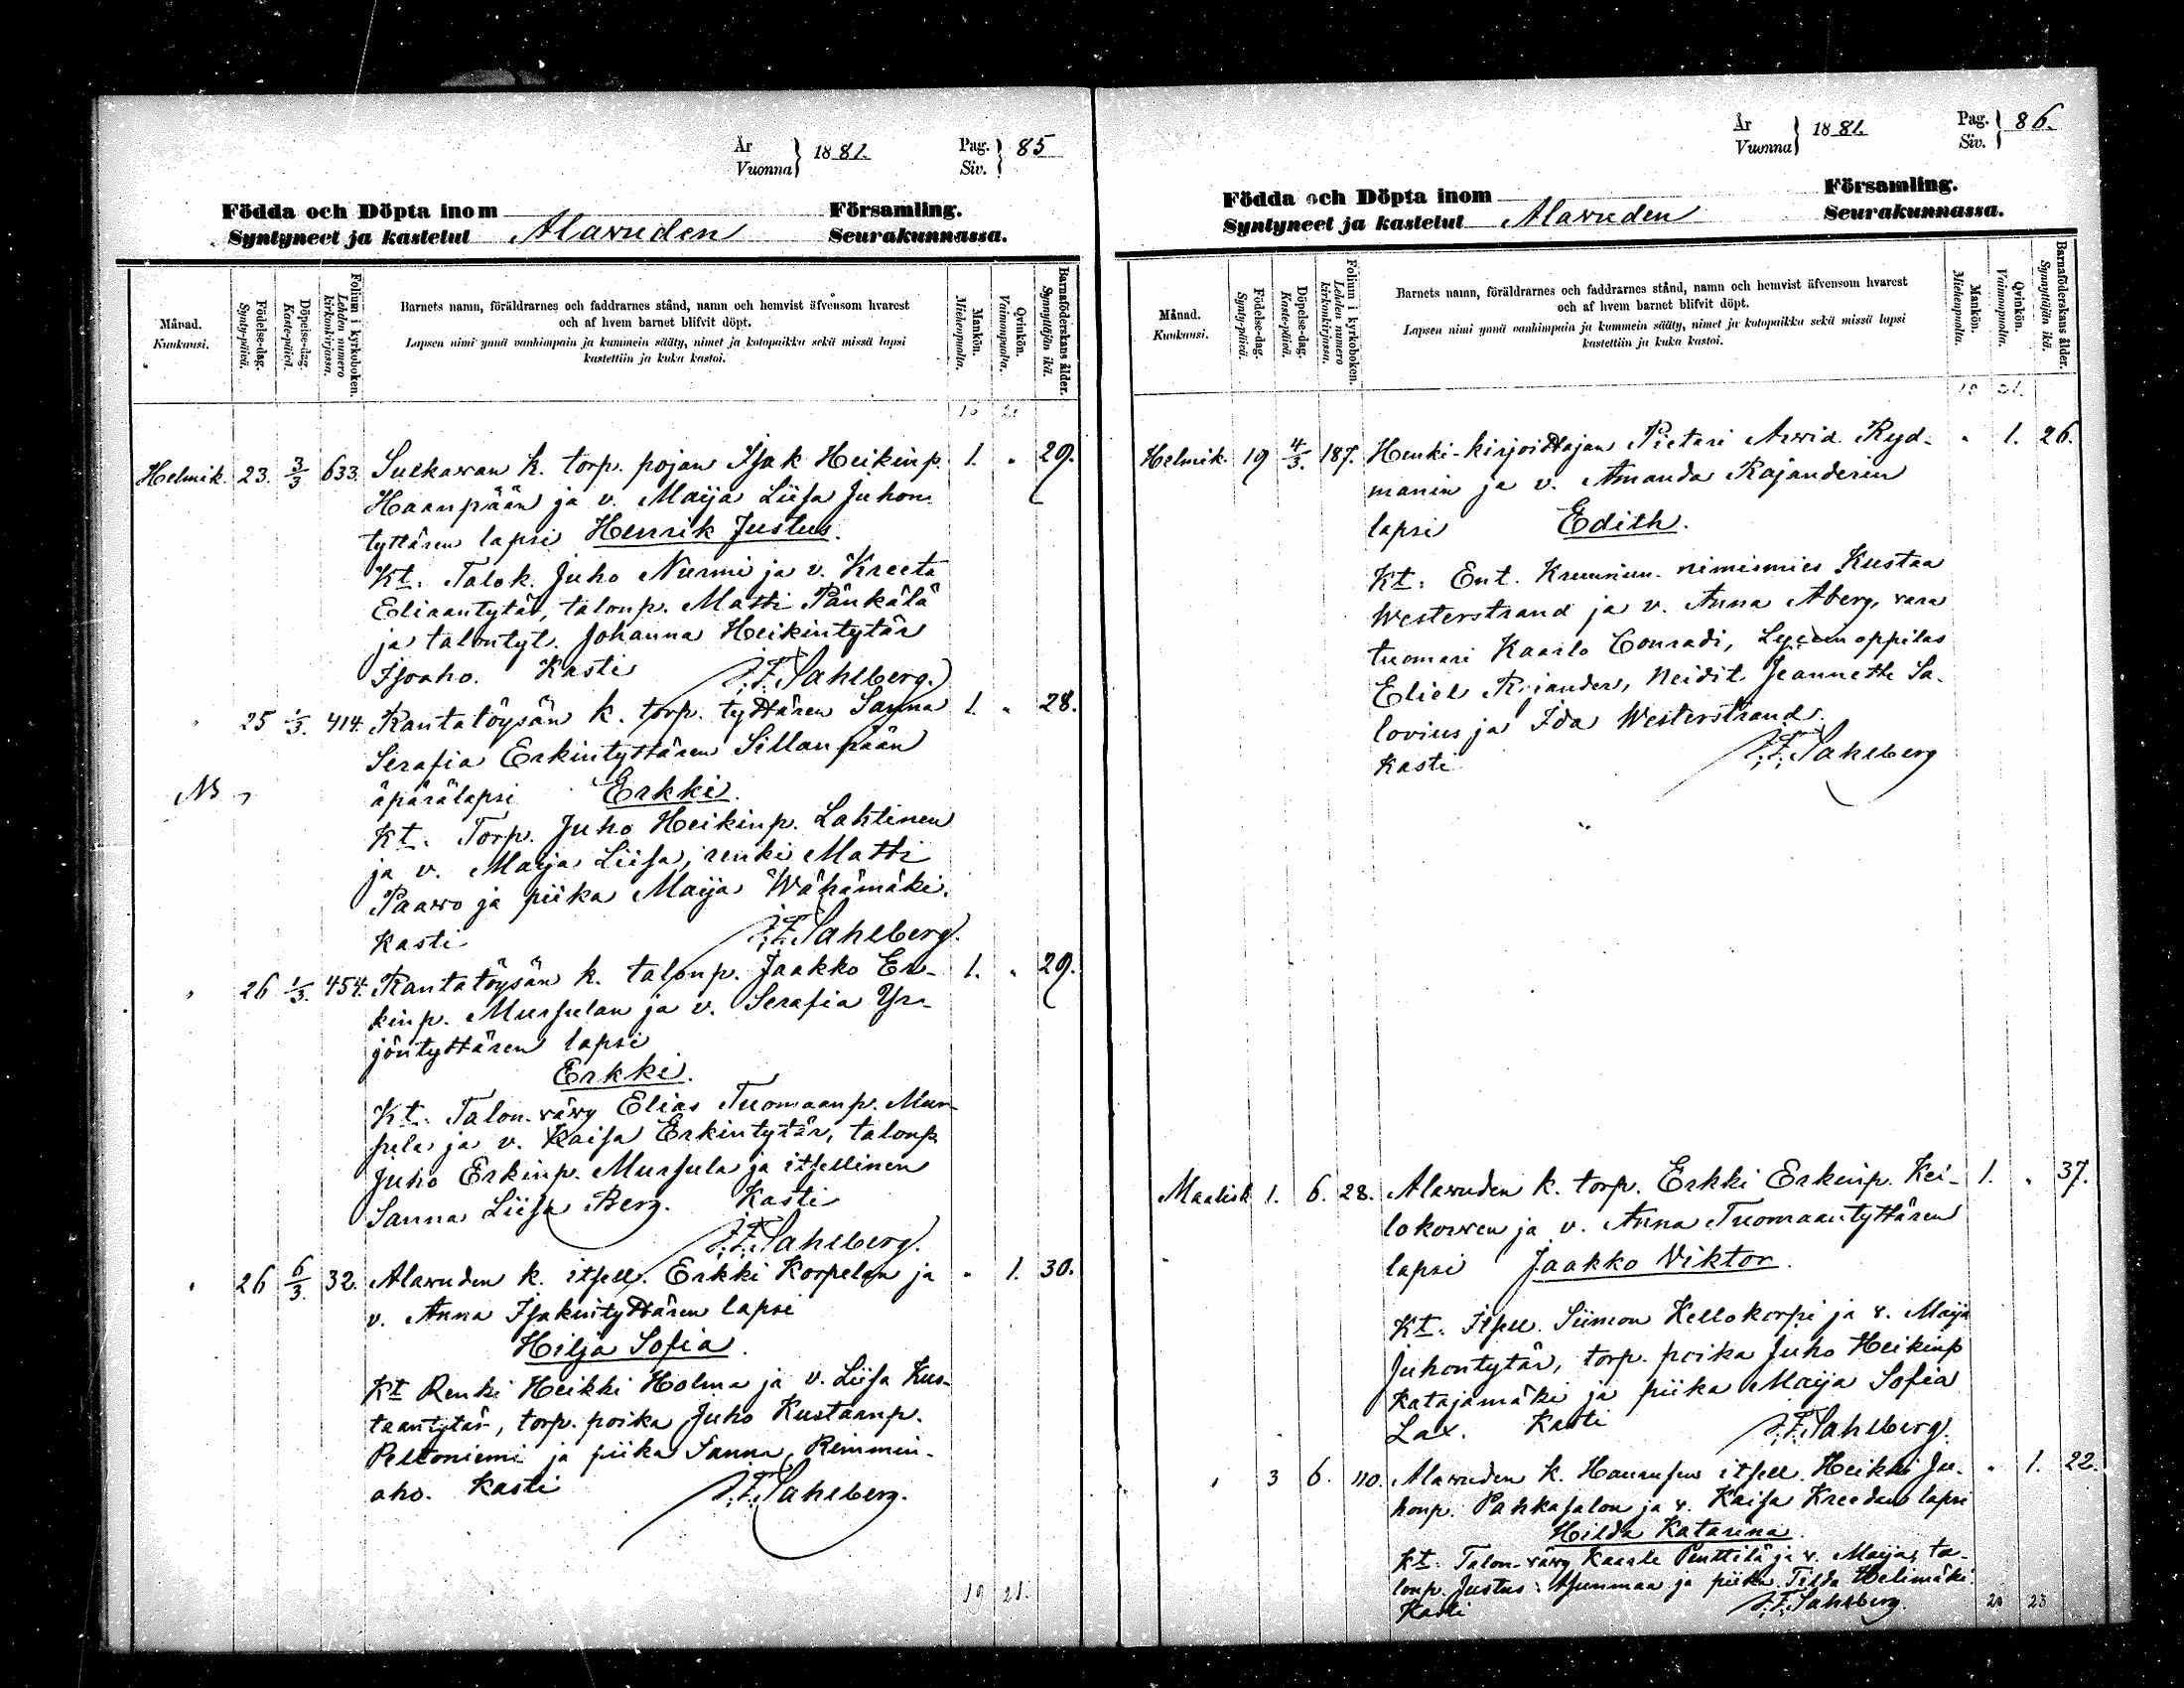 År Vuonna } 1881. Pag. Siv. } 85
Födda och Döpta inom Församling.
Syntyneet ja kastetut Alawuden Seurakunnassa.
Månad. Kuukausi.
Födelse-dag. Synty-päivä.
Döpelse-dag. Kaste-päivä.
Folium i kyrkoboken. Lehden numero kirkonkirjassa.
Barnets namn, föräldrarnes och faddrarnes stånd, namn och hemvist äfvensom hvarest
och af hvem barnet blifvit döpt.
Lapsen nimi ynnä vanhimpain ja kummein sääty, nimet ja kotopaikka sekä missä lapsi
kastettiin ja kuka kastoi.
Mankön. Miehenpuolta.
Qvinkön. Vaimonpuolta.
Barnaföderskans ålder. Synnyttäjän ikä.
Helmik. 23. 3/3 633. Sulkawan k. torp. pojan Isak Heikinp. 1. " 29.
Haanpään ja v. Maija Liisa Juhon
tyttären lapsi Henrik Justus.
Kt. Talok. Juho Nurmi ja v. Kreeta
Eliaantytär, talonp. Matti Pänkälä
ja talontyt. Johanna Heikintytär
Isoaho. Kasti J.F. Sahlberg.
" 25 1/3. 414. Rantatöysän k. torp. tyttären Sanna 1. " 28.
Serafia Erkintyttären Sillanpään
NB äpärälapsi Erkki.
Kt. Torp. Juho Heikinp. Lahtinen
ja v. Maija Liisa, renki Matti
Paawo ja piika Maija Wähämäki.
Kasti J.F. Sahlberg.
" 26 1/3. 454. Rantatöysän k. talonp. Jaakko Er- 1. " 29.
kinp. Mursulan ja v. Serafia Yr-
jöntyttären lapsi
Erkki.
Kt. Talon-väwy Elias Tuomaanp. Mur-
sula ja v. Kaisa Erkintytär, talonp.
Juho Erkinp. Mursula ja itsellinen
Sanna Liisa Berg. Kasti
J.F. Sahlberg.
" 26 6/3. 32. Alawuden k. itsell. Erkki Korpelan ja " 1. 30.
v. Anna Isakintyttären lapsi
Hilja Sofia.
Kt Renki Heikki Holma ja v. Liisa Kus-
taantytär, torp. poika Juho Kustaanp.
Peltoniemi ja piika Sanna Rimmin-
aho. Kasti J.F. Sahlberg.
19 21.
År Vuonna } 1881. Pag. Siv. } 86.
Födda och Döpta inom Församling.
Syntyneet ja kastetut Alawuden Seurakunnassa.
Månad. Kuukausi.
Födelse-dag. Synty-päivä.
Döpelse-dag. Kaste-päivä.
Folium i kyrkoboken. Lehden numero kirkonkirjassa.
Barnets namn, föräldrarnes och faddrarnes stånd, namn och hemvist äfvensom hvarest
och af hvem barnet blifvit döpt.
Lapsen nimi ynnä vanhimpain ja kummein sääty, nimet ja kotopaikka sekä missä lapsi
kastettiin ja kuka kastoi.
Mankön. Miehenpuolta.
Qvinkön. Vaimonpuolta.
Barnaföderskans ålder. Synnyttäjän ikä.
19 21.
Helmik. 19 4/3. 187. Henki-kirjoittajan Pietari Arvid Ryd- " 1. 26.
manin ja v. Amanda Rajanderin
lapsi Edith.
Kt: Ent. Kruunun nimismies Kustaa
Westerstrand ja v. Anna Åberg, vara
tuomari Kaarlo Conradi, Lyceumoppilas
Eliel Rajander, Neidit Jeannette Sa-
lovius ja Ida Westerstrand.
Kasti J.F. Sahlberg
Maalisk. 1. 6. 28. Alawuden k. torp. Erkki Erkinp. Kei- 1. " 37.
lokorven ja v. Anna Tuomaantyttären
lapsi Jaakko Viktor.
Kt. Itsell. Siimon Kellokorpi ja v. Maija
Juhontytär, torp. poika Juho Heikinp
Katajamäki ja piika Maija Sofia
Lax. Kasti J.F. Sahlberg.
" 3 6. 110. Alawuden k. itsell. Heikki Ju- " 1. 22.
honp. Pahkasalon ja v. Kaisa Kreedan lapsi
Hilda Katarina.
Kt. Talon-väwy Kaarle Penttilä ja v. Maija, ta-
lonp. Justus Asunmaa ja piika Tilda Helimäki.
Kasti J.F. Sahlberg.
20 23